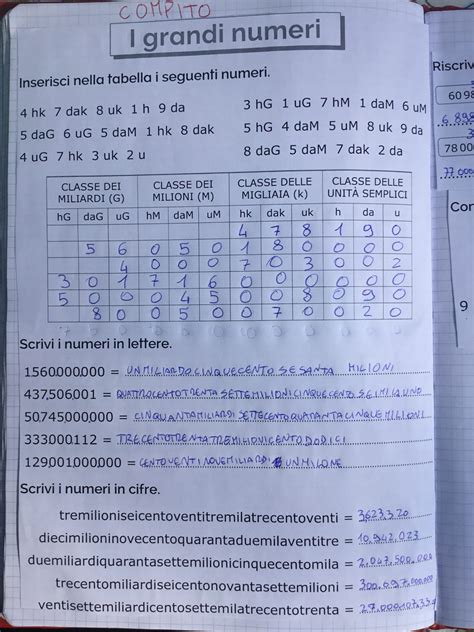 COMPITO
I grandi numeri
Inserisci nella tabella i seguenti numeri.
4 hk 7 dak 8 uk 1 h 9 da
3 hG 1 uG 7 hM 1 daM 6 uM
5 daG 6 uG 5 daM 1 hk 8 dak
5 hG 4 daM 5 uM 8 uk 9 da
4 uG 7 hk 3 uk 2 u
8 daG 5 daM 7 dak 2 da
CLASSE DEI MILIARDI (G) CLASSE DEI MILIONI (M) CLASSE DELLE MIGLIAIA (k) CLASSE DELLE UNITÀ SEMPLICI
hG daG uG hM daM uM hk dak uk h da u
4 7 8 1 9 0
5 6 0 5 0 1 8 0 0 0 0
4 0 0 0 7 0 3 0 0 2
3 0 1 7 1 6 0 0 0 0 0 0
5 0 0 0 4 5 0 0 8 0 9 0
8 0 0 5 0 0 7 0 0 2 0
Scrivi i numeri in lettere.
1560000000 = UNMILIARDOCINQUECENTOSESSANTA MILIONI
437,506001 = QUATTROCENTOTRENTASETTEMILIONICINQUECENTOSEIMILAUNO
50745000000 = CINQUANTAMILIARDI SETTECENTOQUARANTACINQUEMILIONI
333000112 = TRECENTOTRENTATREMILIONICENTODODICI
129001000000 = CENTOVENTINOVEMILIARDI UNMILIONE
Scrivi i numeri in cifre.
tremilioniseicentoventitremilatrecentoventi = 3623320
diecimilioninovecentoquarantaduemilaventitre = 10.942.023
duemiliardiquarantasettemilionicinquecentomila = 2.047.500.000
trecentomiliardiseicentonovantasettemilioni = 300.697.000.000
ventisettemiliardicentosettemilatrecentotrenta = 27.000.107.330
Riscriv
6098
6.898
78000
77.000
Con
9